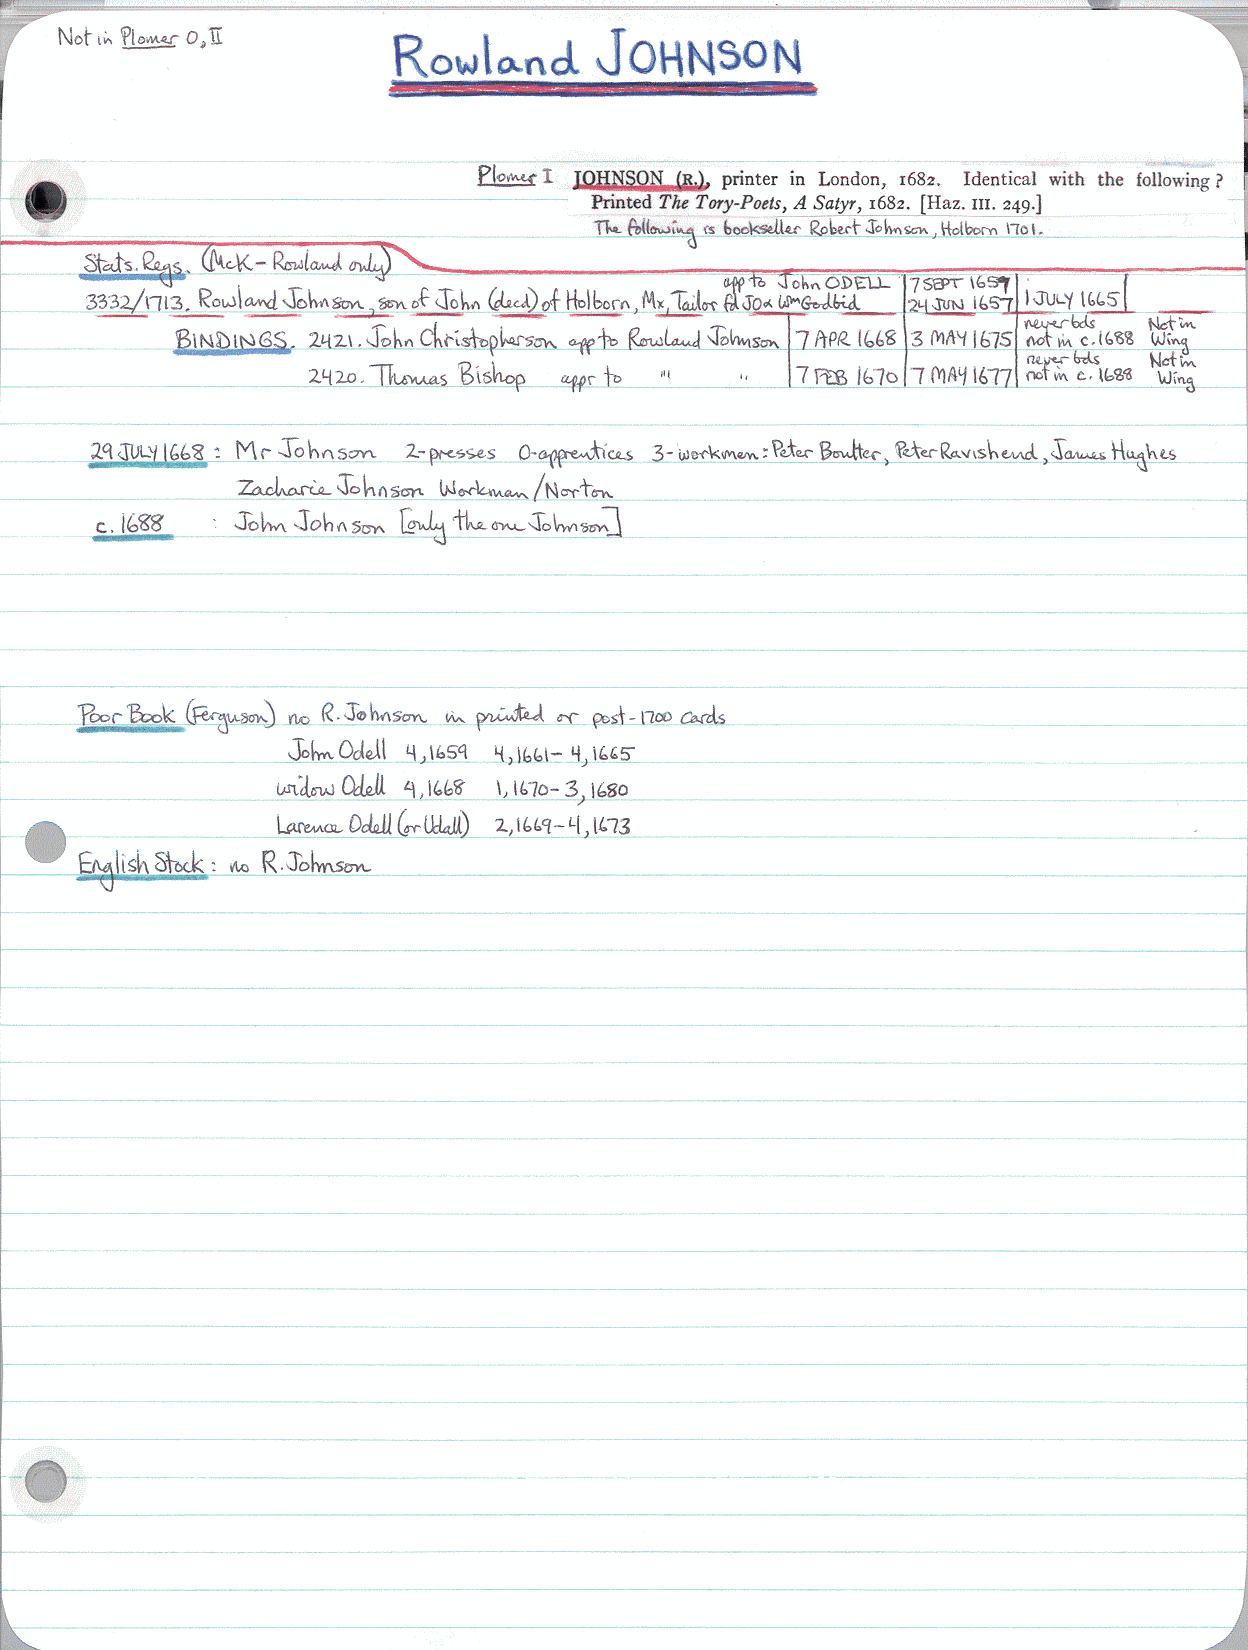 Not in Plomer O, II
Rowland JOHNSON
Plomer I JOHNSON (R.), printer in London, 1682. Identical with the following?
Printed The Tory-Poets, A Satyr, 1682. [Haz. III. 249.]
The following is bookseller Robert Johnson, Holborn 1701.
Stats. Regs. (McK - Rowland only)
app to John ODELL 7 SEPT 1659
3332/1713. Rowland Johnson, son of John (decd) of Holborn, Mx, Tailor fd JOx Wm Godbid 24 JUN 1657 1 JULY 1665
BINDINGS. 2421. John Christopherson app to Rowland Johnson 7 APR 1668 3 MAY 1675 never bds not in c.1688 Not in Wing
2420. Thomas Bishop appr to " " 7 FEB 1670 7 MAY 1677 never bds not in c. 1688 Not in Wing
29 JULY 1668 : Mr Johnson 2-presses 0-apprentices 3-workmen: Peter Boulter, Peter Ravishend, James Hughes
Zacharie Johnson Workman/Norton
c. 1688 : John Johnson [only the one Johnson]
Poor Book (Ferguson) no R. Johnson in printed or post-1700 cards
John Odell 4,1659 4,1661-4,1665
widow Odell 4,1668 1,1670-3,1680
Larence Odell (or Udall) 2,1669-4,1673
English Stock: no R. Johnson